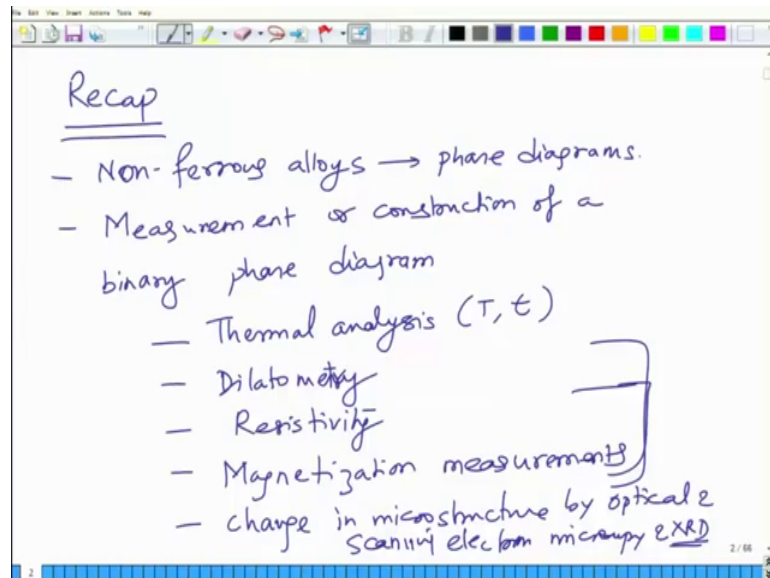 File Edit View Insert Actions Tools Help
Recap
- Non-ferrous alloys → phase diagrams.
- Measurement or construction of a
binary phase diagram
- Thermal analysis (T, t)
- Dilatometry
- Resistivity
- Magnetization measurements
- change in microstructure by optical &
scanning electron micrscopy & XRD
2/66
2